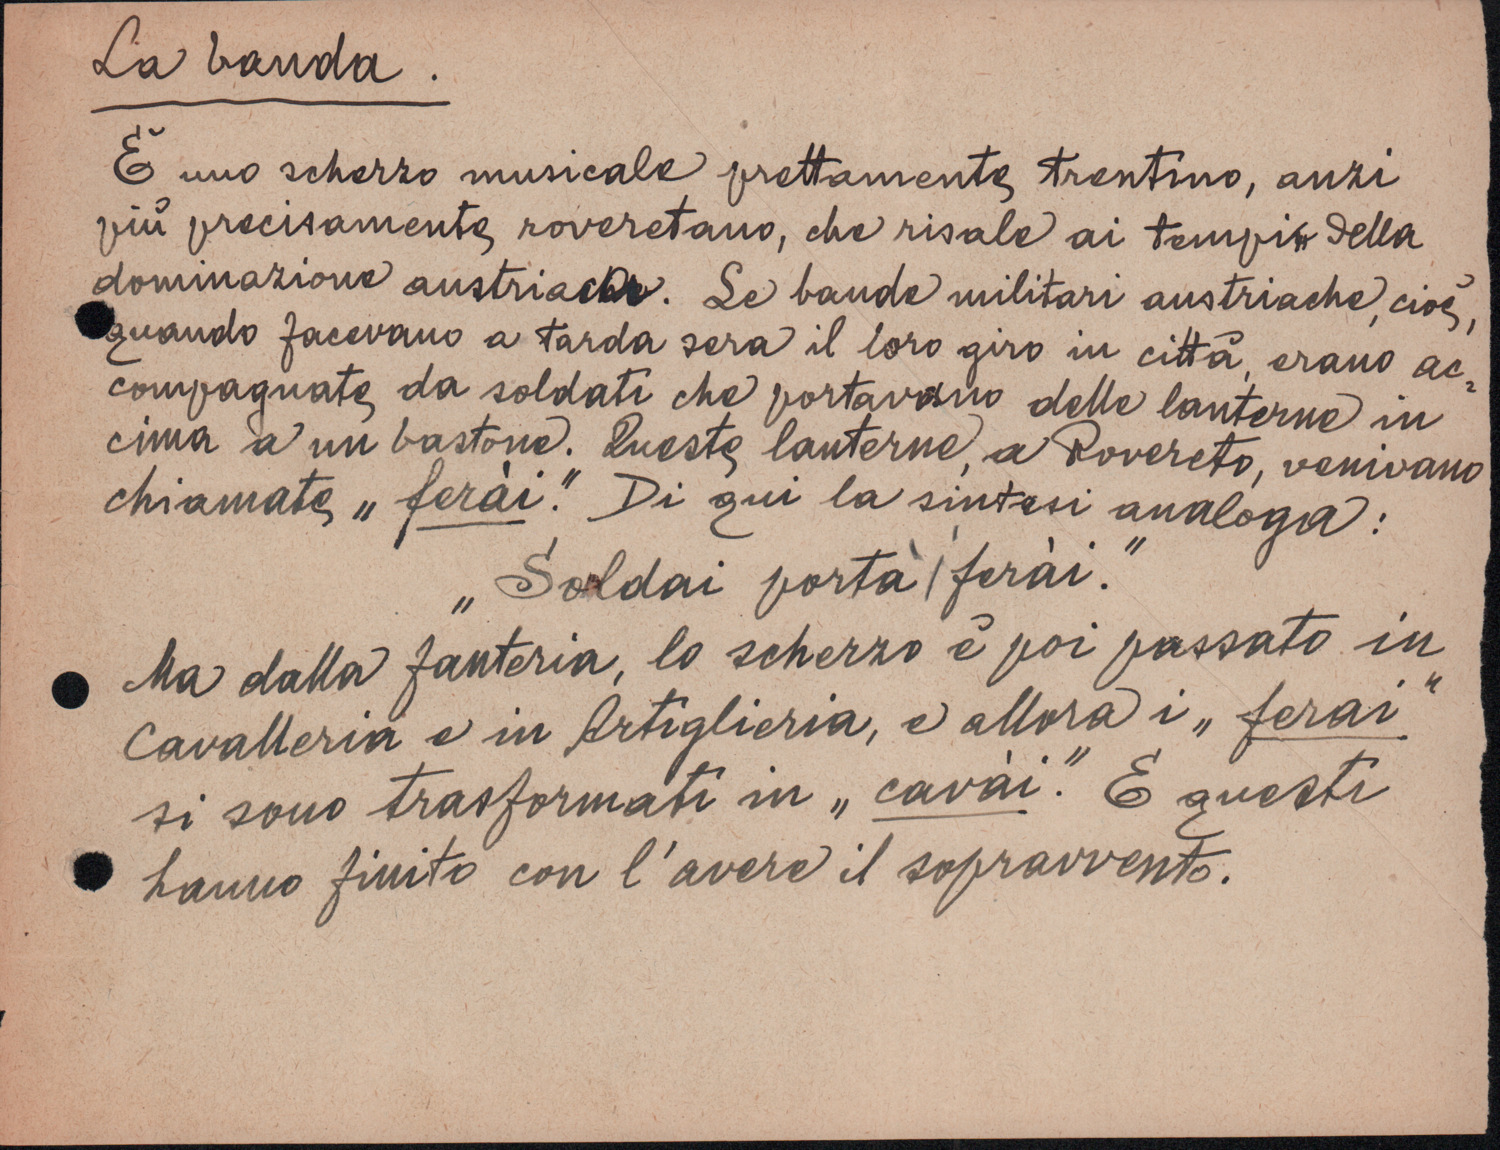 La banda.
È uno scherzo musicale prettamente trentino, anzi
più precisamente roveretano, che risale ai tempi della
dominazione austriaca. Le bande militari austriache, cioè,
quando facevano a tarda sera il loro giro in città, erano ac=
compagnate da soldati che portavano delle lanterne in
cima a un bastone. Queste lanterne, a Rovereto, venivano
chiamate „ferài." Di qui la sintesi analoga:
„Soldai portà / ferài."
Ma dalla fanteria, lo scherzo è poi passato in
Cavalleria e in Artiglieria, e allora i „ferai"
si sono trasformati in „cavài." E questi
hanno finito con l'avere il sopravvento.